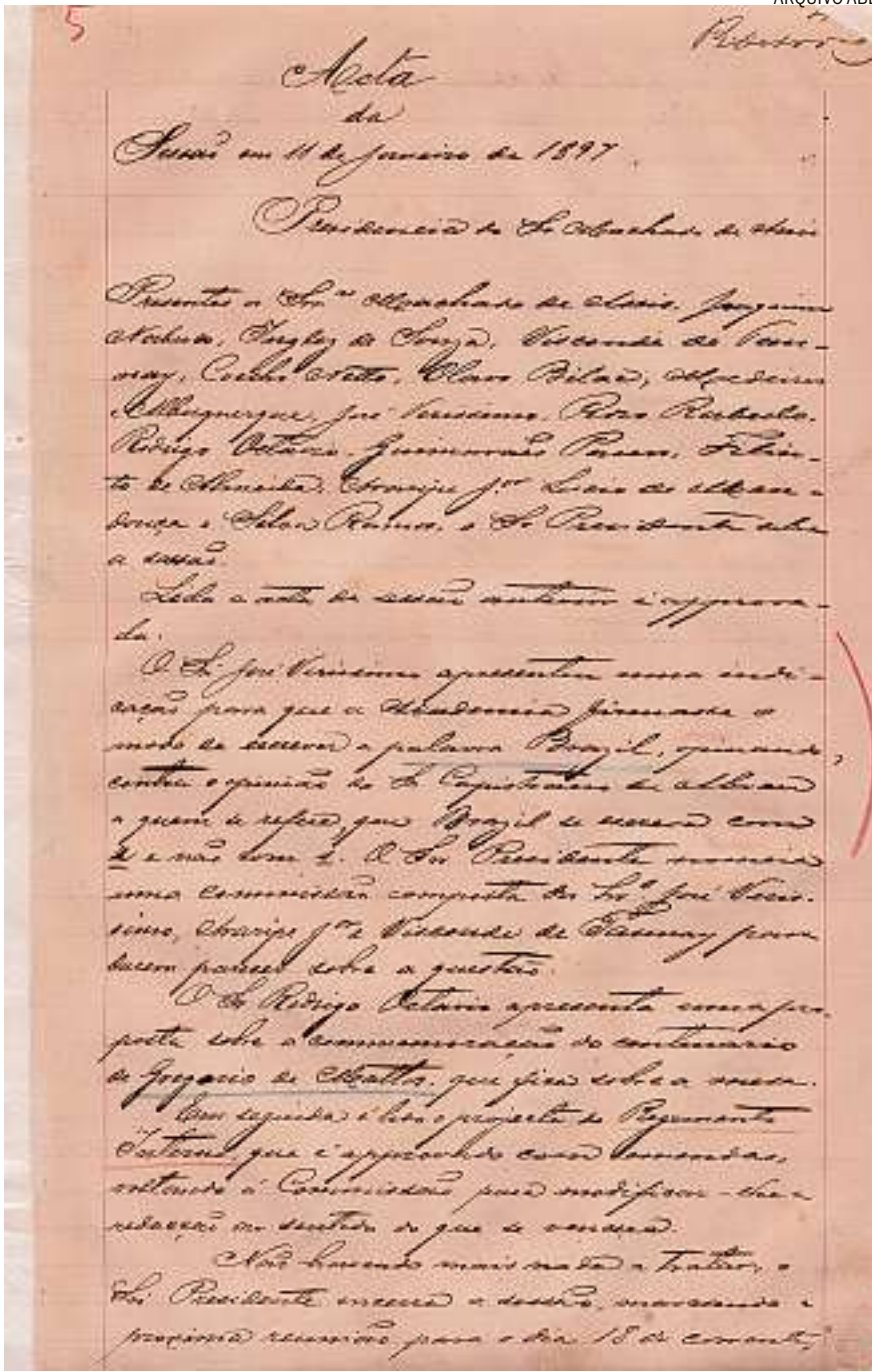 ARQUIVO ABL
5
Acta
da
Sessaõ em 11 de Janeiro de 1897.
Presidencia do Sr Machado de Assis
Presentes os Srs Machado de Assis, Joaquim
Nabuco, Inglez de Souza, Visconde de Tau-
nay, Coelho Netto, Olavo Bilac, Medeiros
Albuquerque, José Verissimo, Rabello,
Rodrigo Octavio, Guimaraẽs Passos, Filin-
to de Almeida, Araripe Jor Lucio de Men-
donça e Silva Ramos, o Sr Presidente abre
a sessaõ.
Lida a acta da sessaõ anterior é approva-
da.
O Sr José Verissimo apresenta uma indi-
caçaõ para que a Academia firmasse o
modo de escrever a palavra Brazil, opinando,
contra a opiniaõ do Sr Capistrano de Abreu
a quem se refere, que Brazil se escreve com
z e naõ com s. O Sr Presidente nomeia
uma commissaõ composta dos Srs José Veris-
simo, Araripe Jor e Visconde de Taunay para
darem parecer sobre a questaõ.
O Sr Rodrigo Octavio apresenta uma pro-
posta sobre a commemoraçaõ do centenario
de Gregorio de Mattos, que fica sobre a mesa.
Em seguida é lido o projecto do Regimento
Interno, que é approvado com emendas,
voltando á Commissaõ para modificar-lhe a
redacçaõ no sentido do que se vencera.
Naõ havendo mais nada a tratar, o
Sr Presidente encerra a sessaõ, marcando a
proxima reuniaõ para o dia 18 do corrente,